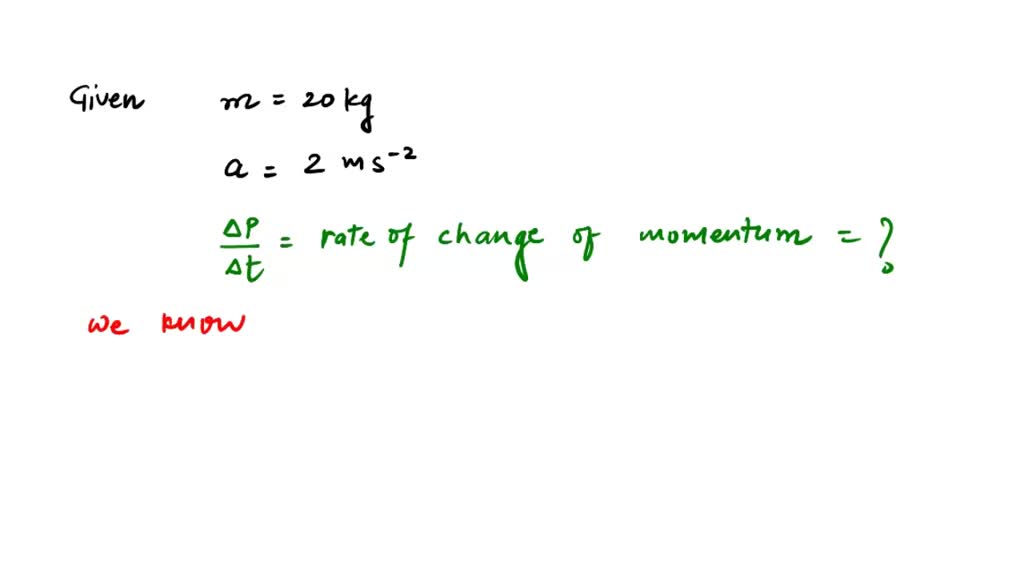 Given m = 20 kg
a = 2 ms⁻²
ΔP/Δt = rate of change of momentum = ?
we know